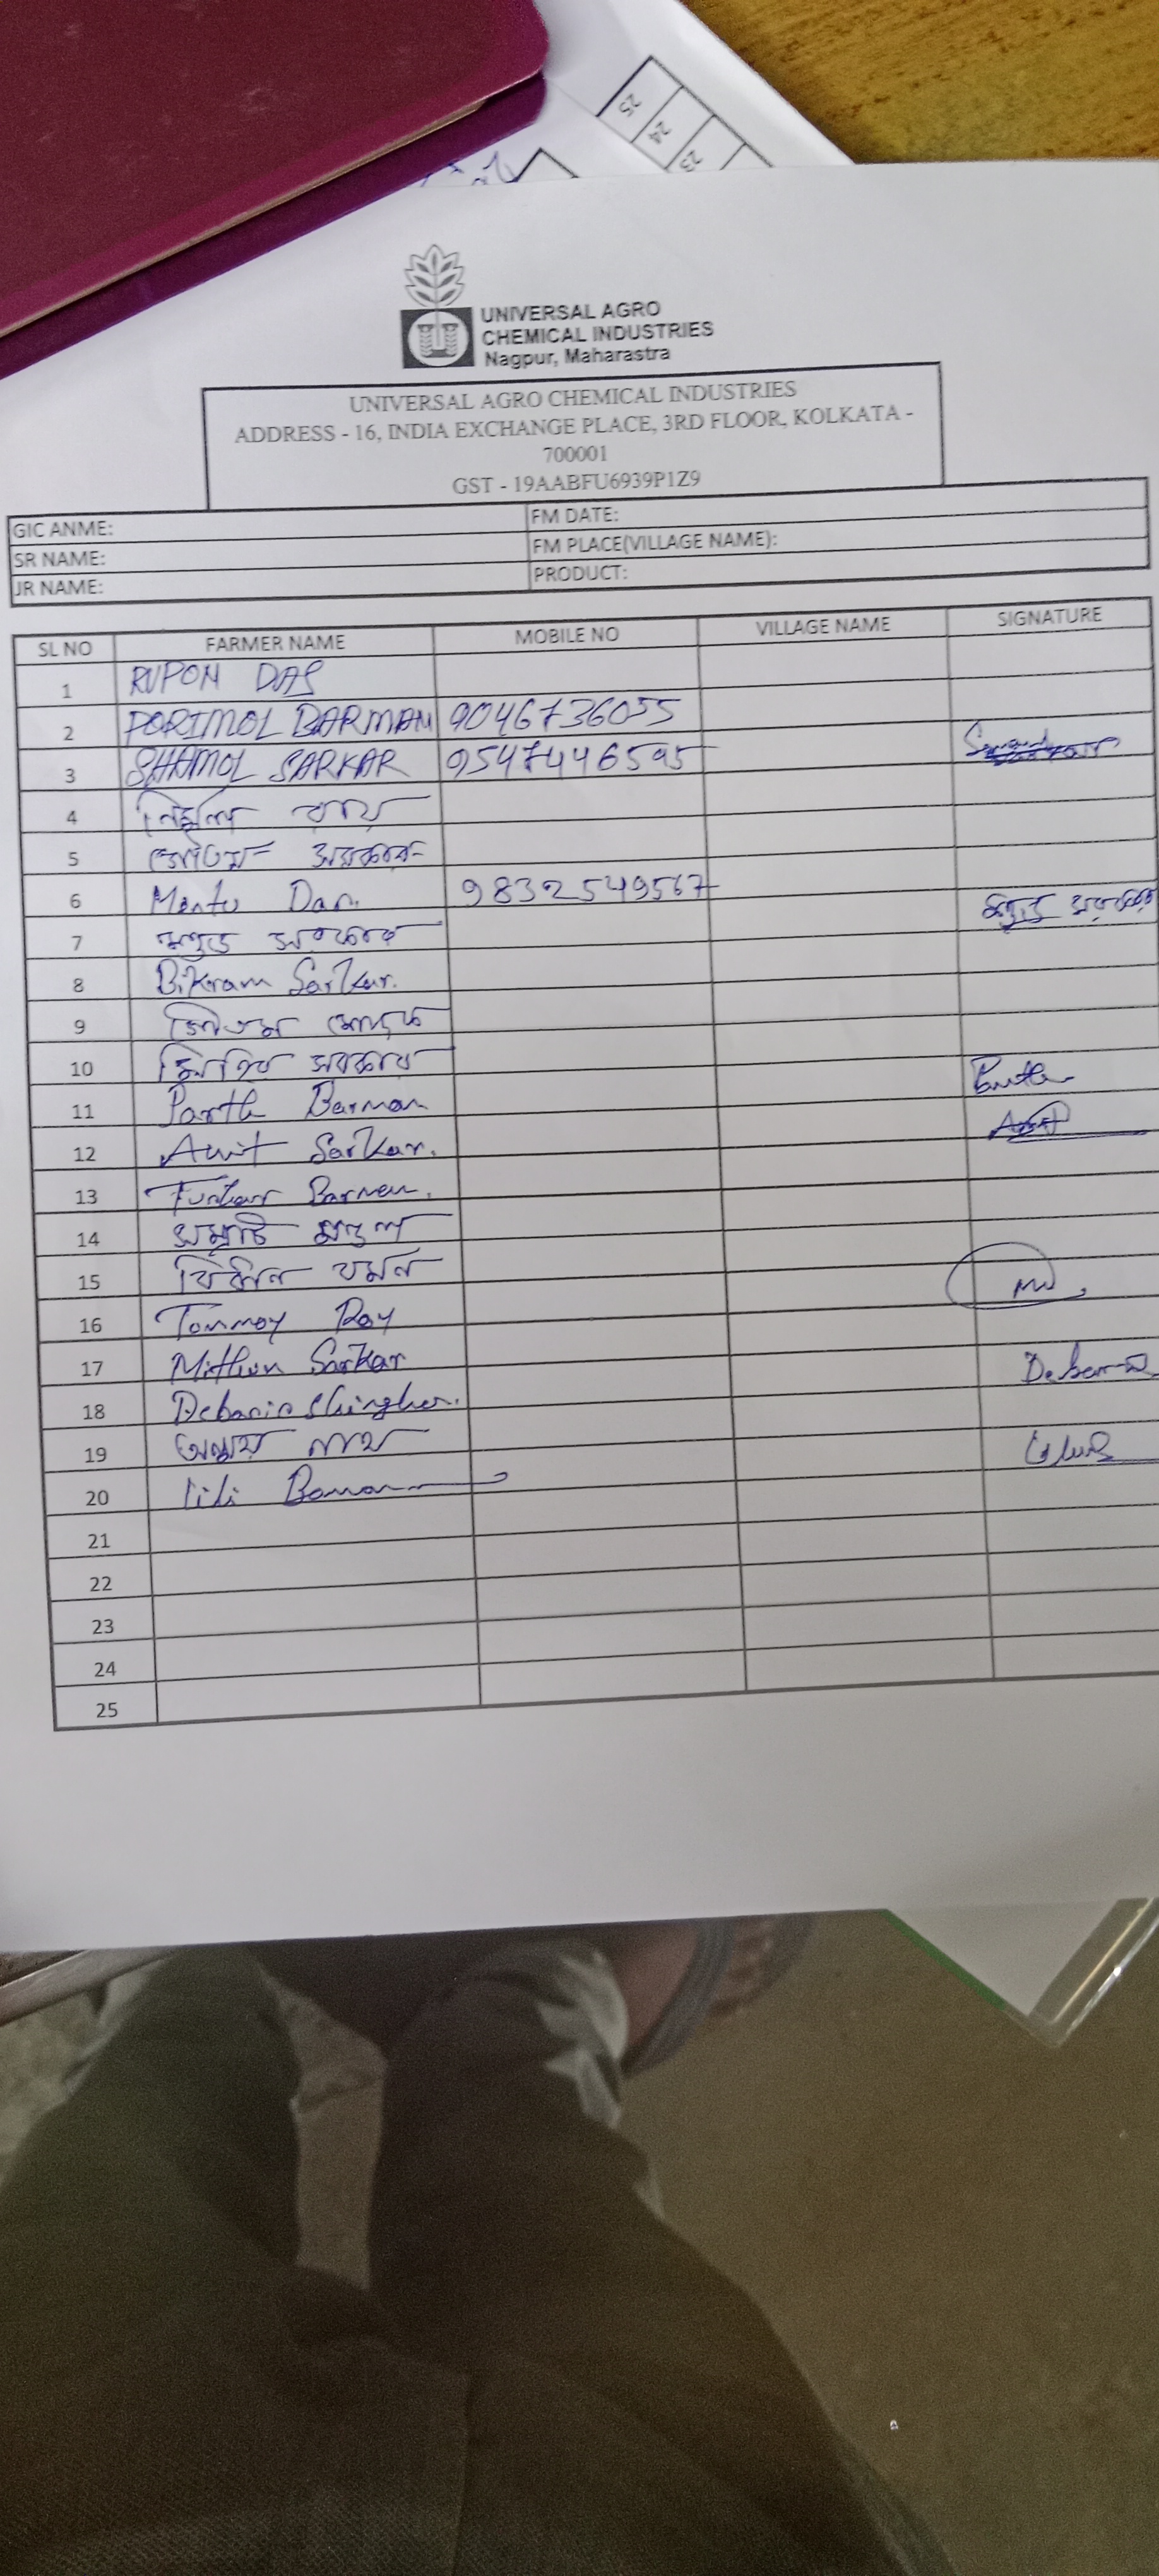 25
24
23
UNIVERSAL AGRO
CHEMICAL INDUSTRIES
Nagpur, Maharastra
UNIVERSAL AGRO CHEMICAL INDUSTRIES
ADDRESS - 16, INDIA EXCHANGE PLACE, 3RD FLOOR, KOLKATA -
700001
GST - 19AABFU6939P1Z9
GIC ANME: FM DATE:
SR NAME: FM PLACE(VILLAGE NAME):
JR NAME: PRODUCT:
SL NO FARMER NAME MOBILE NO VILLAGE NAME SIGNATURE
1 RUPON DAS
2 PORIMOL BARMAN 9046736055
3 SHAMOL SARKAR 9547446595
4 নির্মল রায়
5 সরকার
6 Mentu Das. 9832549567
7 সরকার
8 Bikram Sarkar.
9
10 মিহির সরকার
11 Parth Barman
12 Amit Sarkar.
13 Barman.
14 সম্রাট মন্ডল
15 বর্মন
16 Tonmoy Roy
17 Mithun Sarkar
18
19
20 lili Barman
21
22
23
24
25